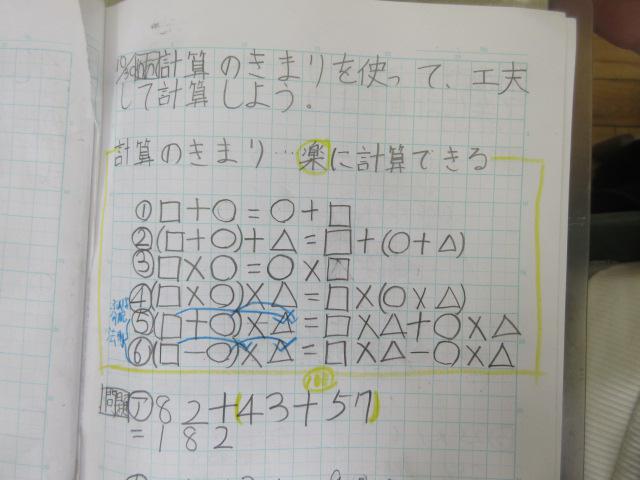 計算のきまりを使って、工夫
して計算しよう。
計算のきまり…楽に計算できる
①□+○=○+□
②(□+○)+△=□+(○+△)
③□×○=○×□
④(□×○)×△=□×(○×△)
⑤(□+○)×△=□×△+○×△
⑥(□-○)×△=□×△-○×△
100
問題 ㋐82+(43+57)
=182